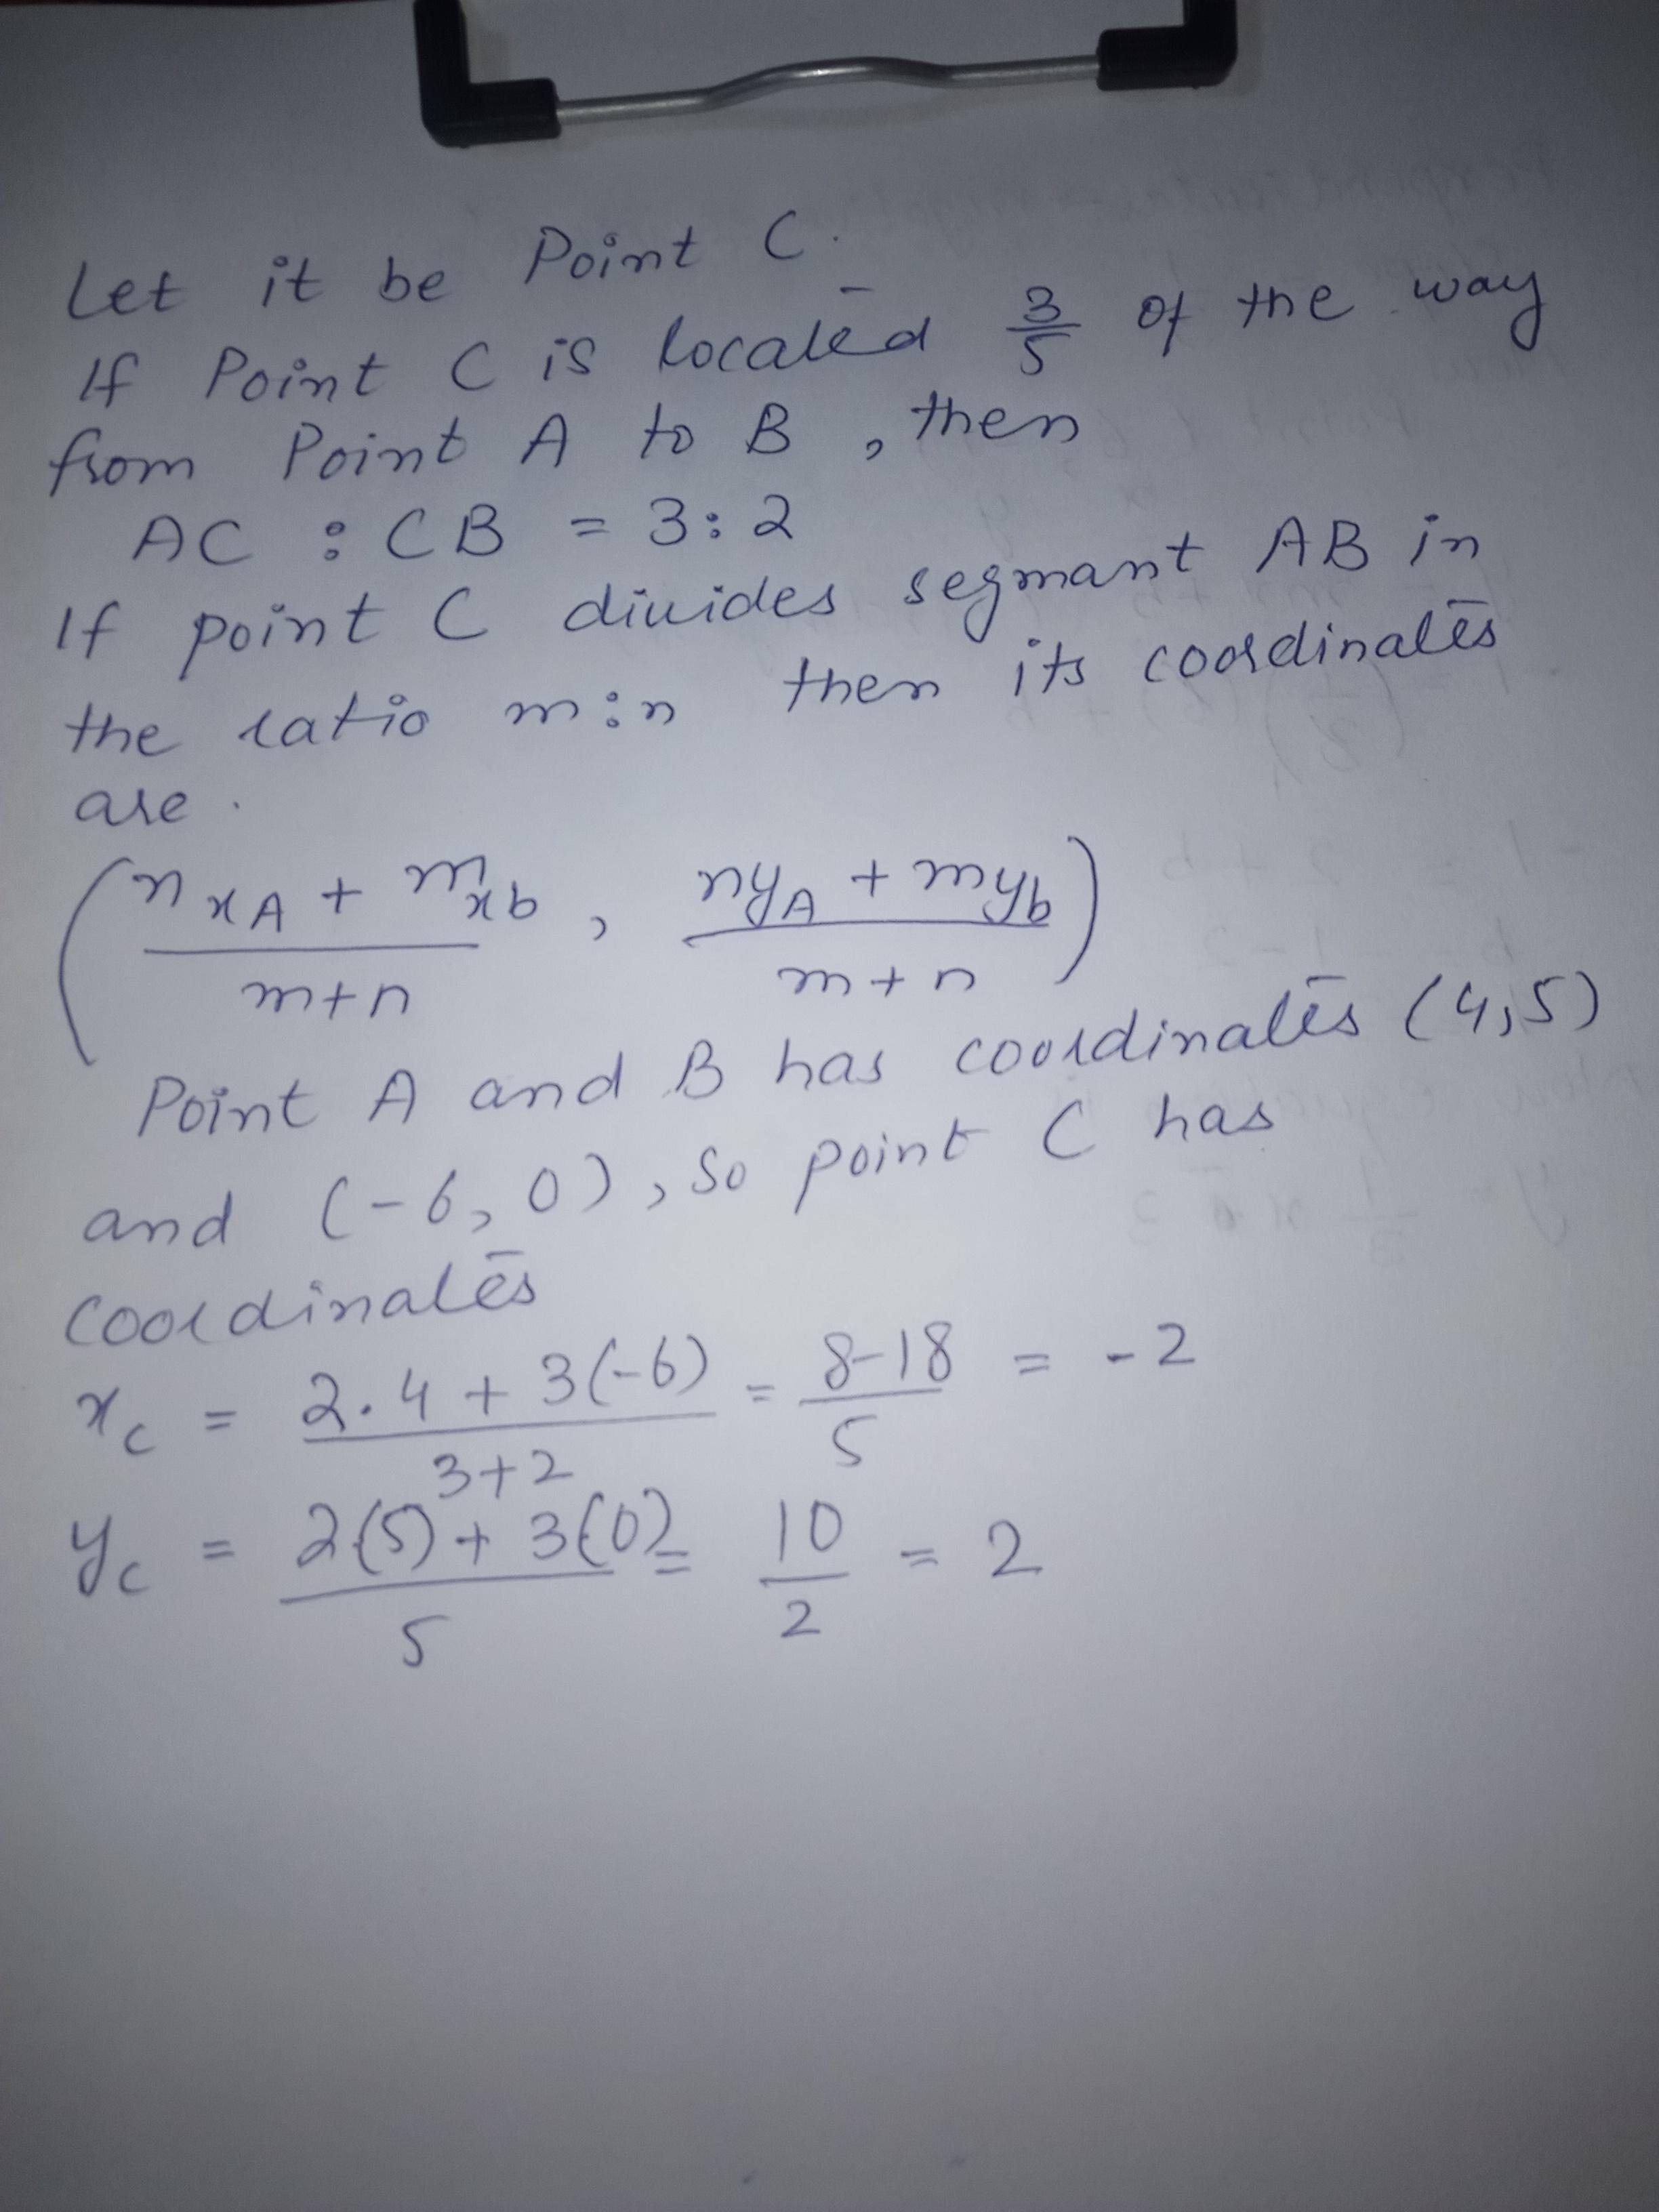 Let it be Point C.
If Point C is located 3/5 of the way
from Point A to B , then
AC : CB = 3:2
If point C divides segmant AB in
the ratio m:n then its coordinates
are .
(nxA + mxb / m+n , nyA + myb / m+n)
Point A and B has coordinates (4,5)
and (-6, 0) , So point C has
coordinates
xc = 2.4 + 3(-6) / 3+2 = 8-18 / 5 = -2
yc = 2(5) + 3(0) / 5 = 10 / 2 = 2